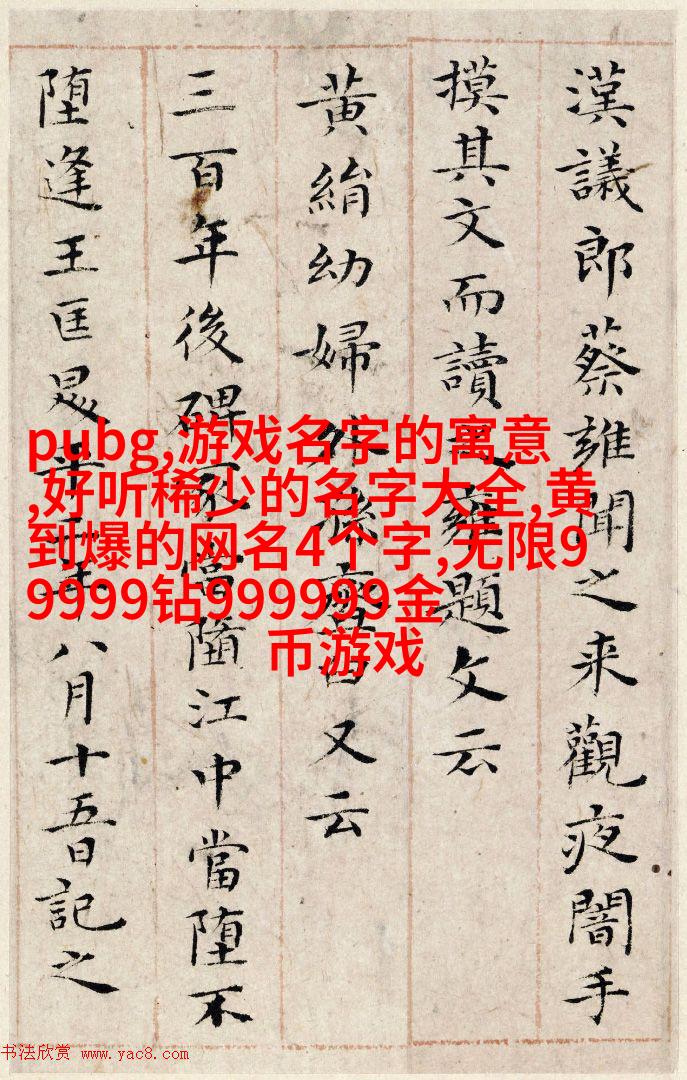 漢議郎蔡雍聞之来觀夜闇手
摸其文而讀雍題文云
黃絹幼婦又云
三百年後碑冢當墮江中當堕不
堕逢王匡八月十五日記之
pubg,游戏名字的寓意
,好听稀少的名字大全,黄
到爆的网名4个字,无限99
9999钻999999金
币游戏
书法欣赏 www.yac8.com